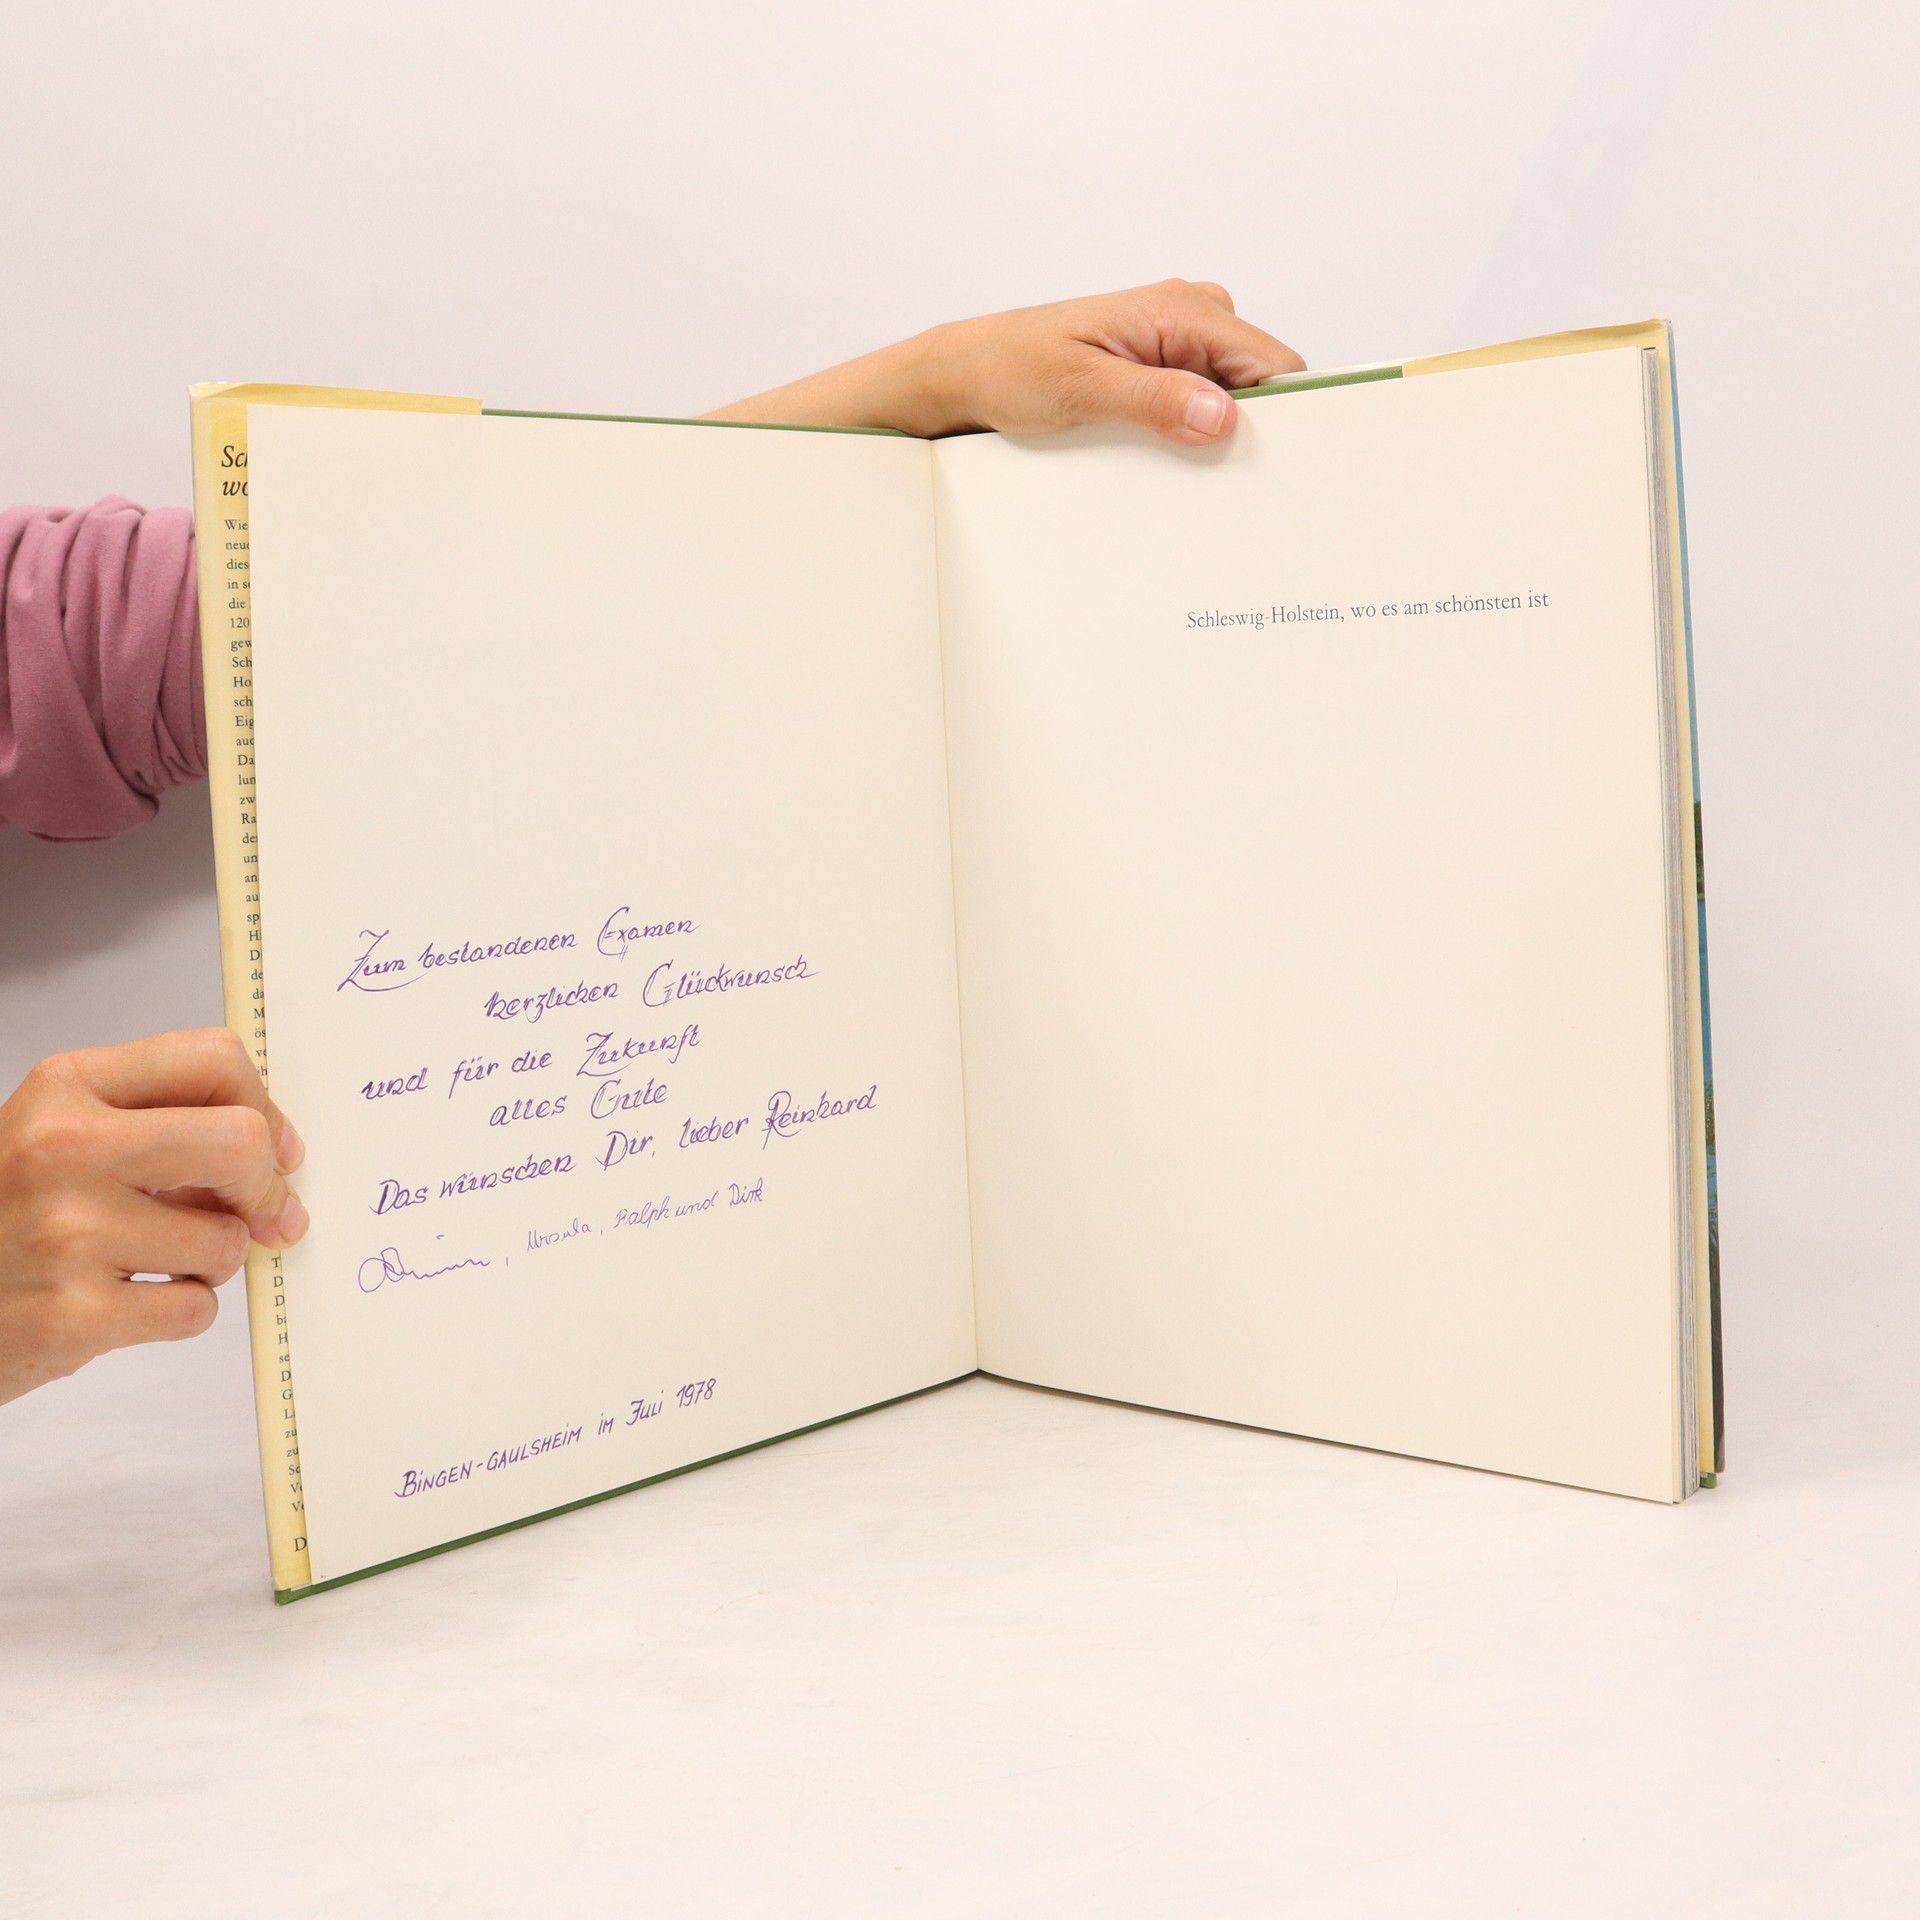 Sch
wo
Wie
neue
dies
in se
die
120
gew
Sch
Ho
sch
Eig
auc
Da
lun
zw
Ra
der
un
an
au
sp
H
D
de
da
M
ös
ve
ih
Zum bestandenen Examen
herzlichen Glückwunsch
und für die Zukunft
alles Gute
Das wünschen Dir, lieber Reinhard
, Ursula, Ralph und Dirk
BINGEN-GAULSHEIM IM JULI 1978
T
D
D
ba
H
se
D
G
L
zu
zu
Sc
Ve
Ve
D
Schleswig-Holstein, wo es am schönsten ist